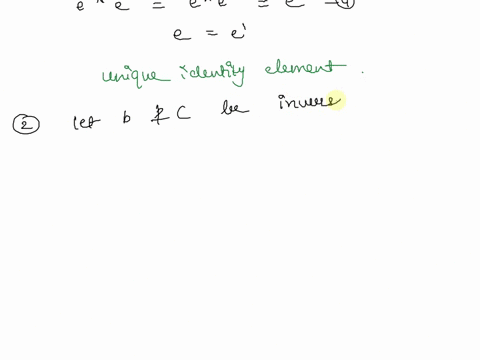 e = e'
unique identity element .
② let b & C be inverse